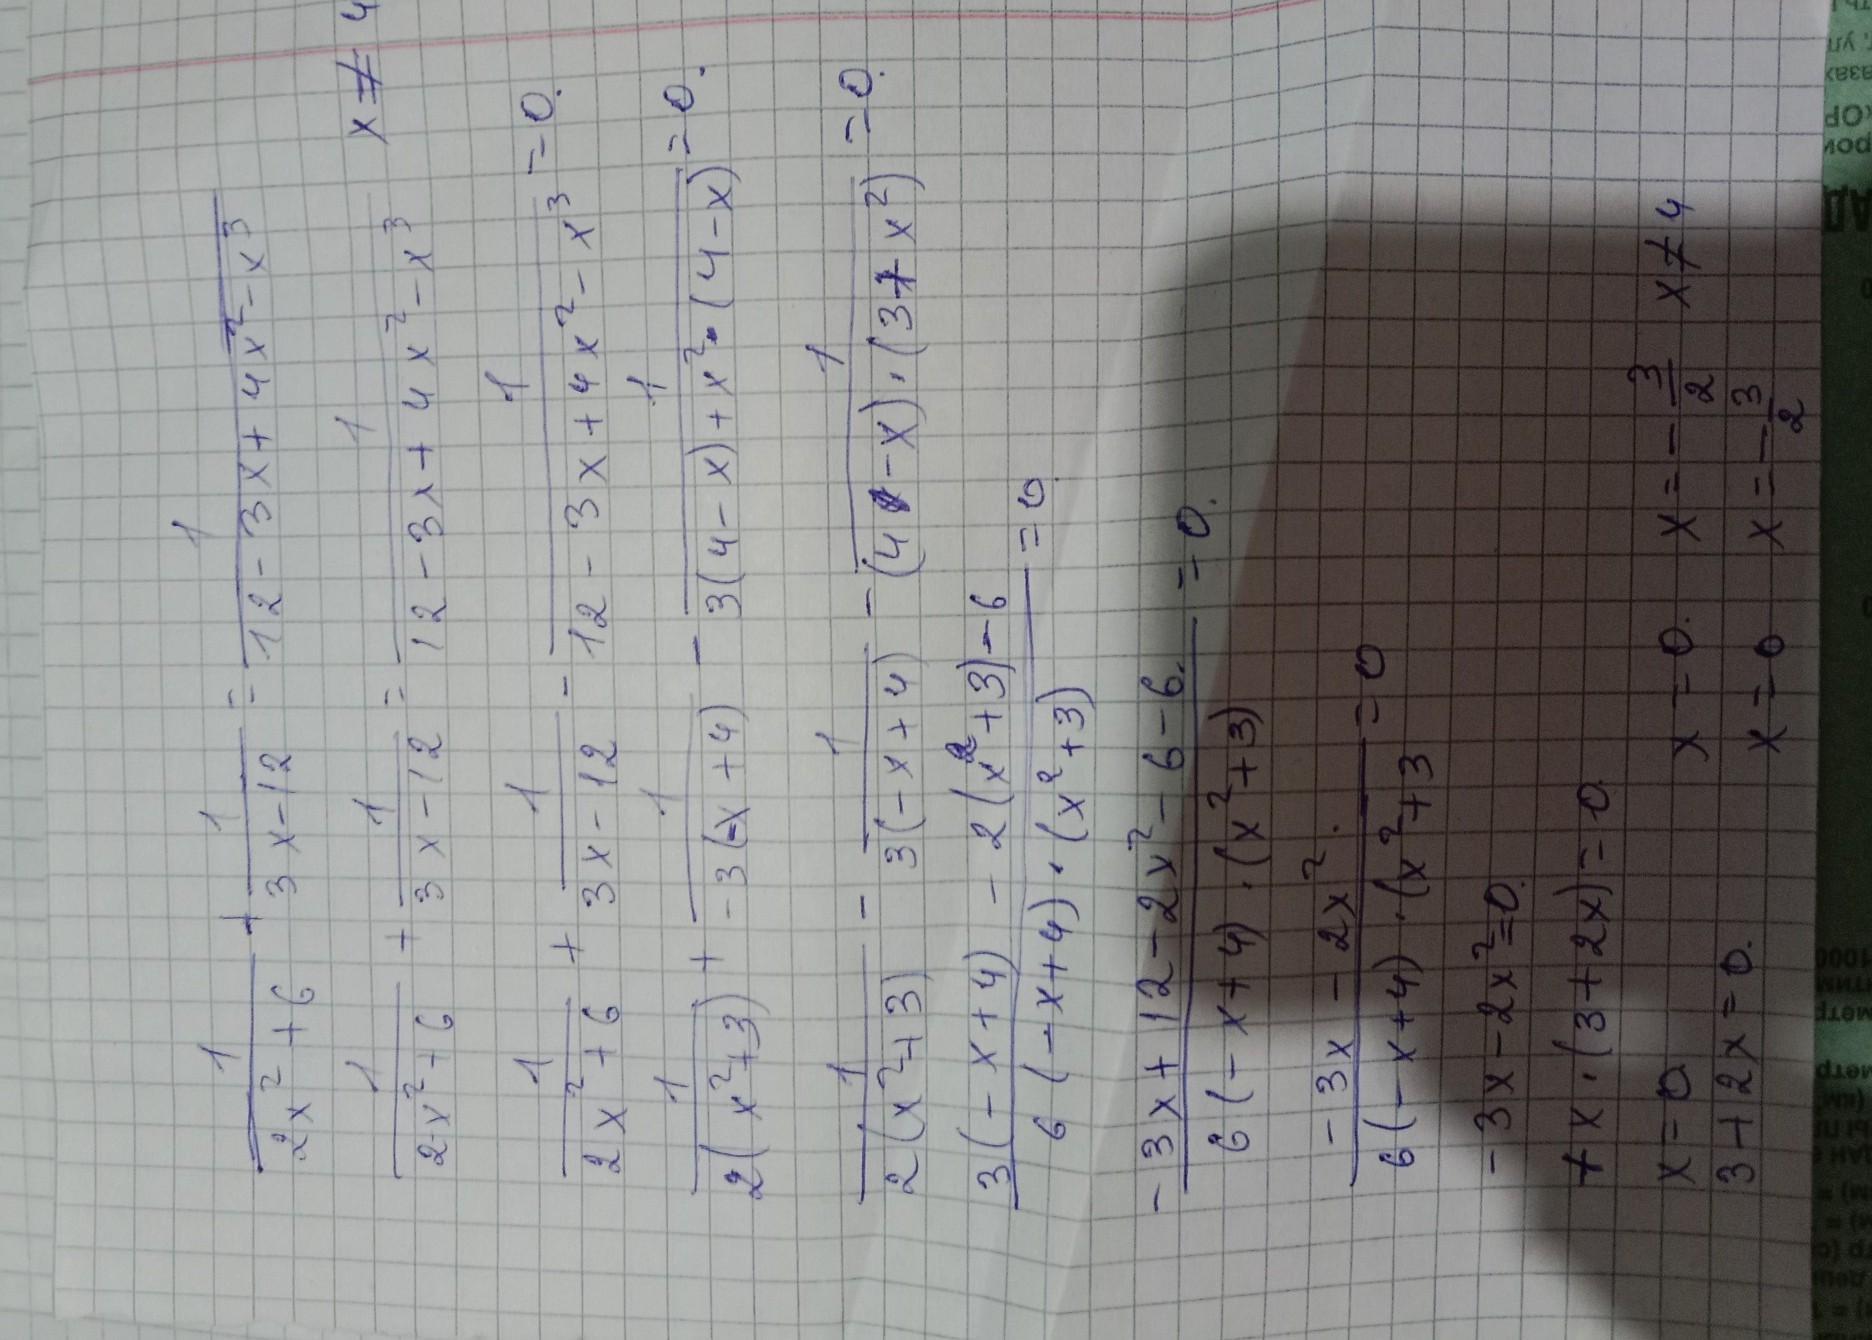 1/(2x² + 6) + 1/(3x - 12) = 1/(12 - 3x + 4x² - x³)
1/(2x² + 6) + 1/(3x - 12) = 1/(12 - 3x + 4x² - x³) x ≠ 4
1/(2x² + 6) + 1/(3x - 12) - 1/(12 - 3x + 4x² - x³) = 0.
1/(2(x² + 3)) + 1/(-3(-x + 4)) - 1/(3(4 - x) + x² · (4 - x)) = 0.
1/(2(x² + 3)) - 1/(3(-x + 4)) - 1/((4 - x) · (3 + x²)) = 0.
(3(-x + 4) - 2(x² + 3) - 6)/(6(-x + 4) · (x² + 3)) = 0
(-3x + 12 - 2x² - 6 - 6.)/(6(-x + 4) · (x² + 3)) = 0.
(-3x - 2x².)/(6(-x + 4) · (x² + 3) = 0
-3x - 2x² = 0.
+x · (3 + 2x) = 0.
x = 0 x = 0. x = -3/2 x ≠ 4
3 + 2x = 0. x = 0 x = -3/2